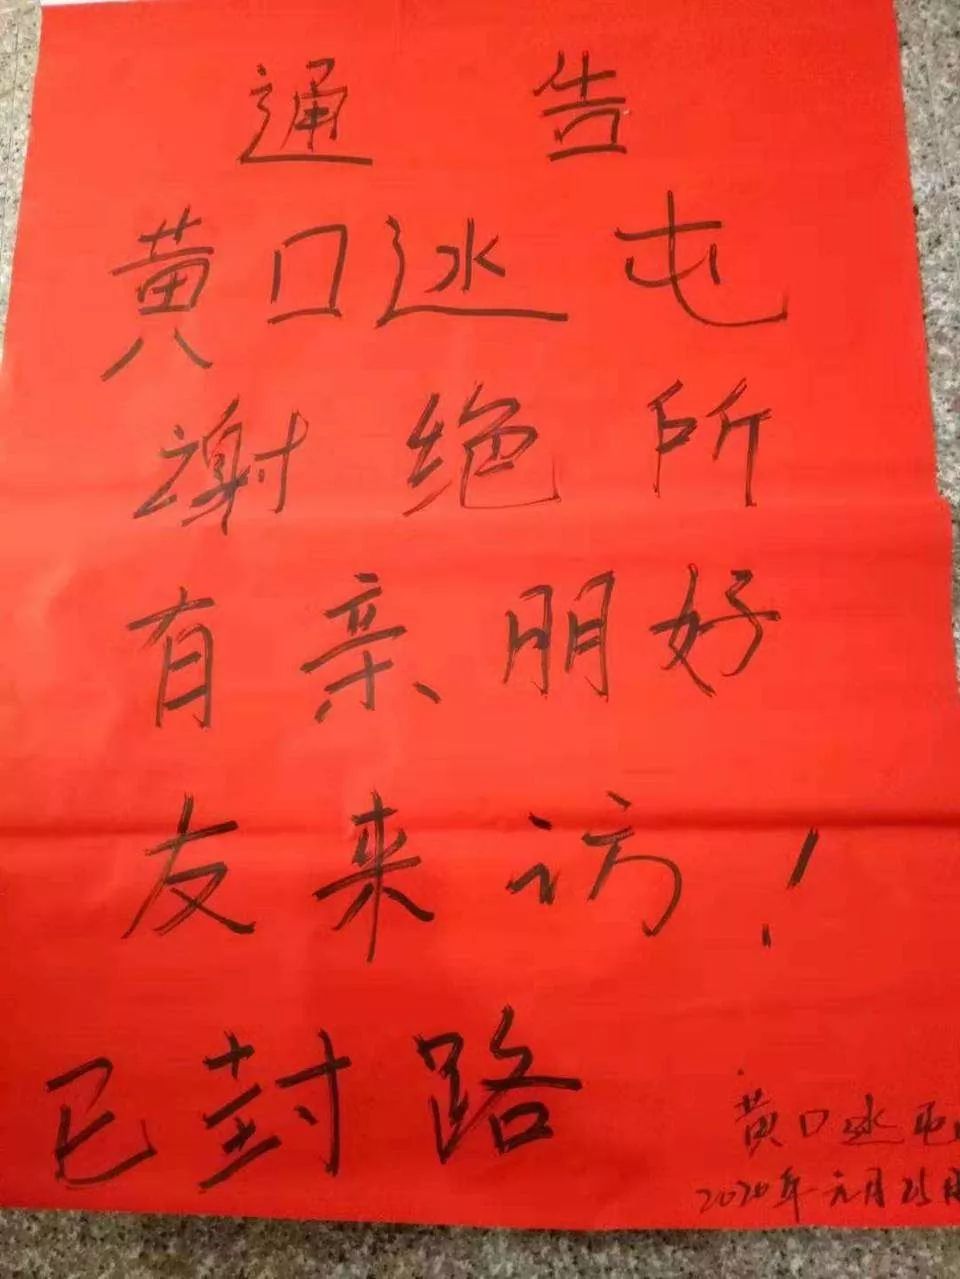 通告
黄口屯
谢绝所
有亲朋好
友来访！
已封路
黄口屯
2020年元月25日